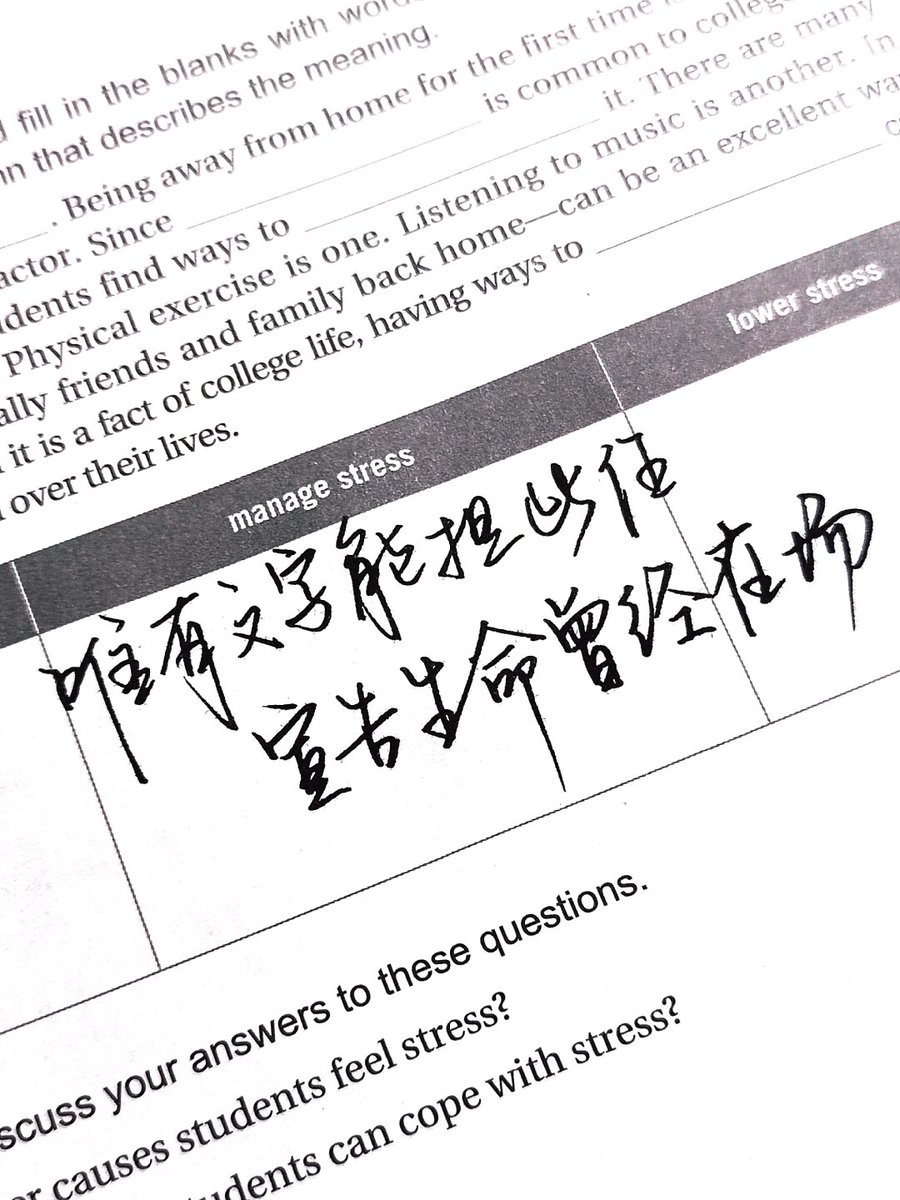 fill in the blanks with
that describes the meaning.
. Being away from home for the first time is
is common to
actor. Since
it. There are many
dents find ways to
Physical exercise is one. Listening to music is another. In
ally friends and family back home—can be an excellent
it is a fact of college life, having ways to
over their lives.
manage stress
lower stress
唯有文字能担此任
宣告生命曾经在场
scuss your answers to these questions.
causes students feel stress?
students can cope with stress?